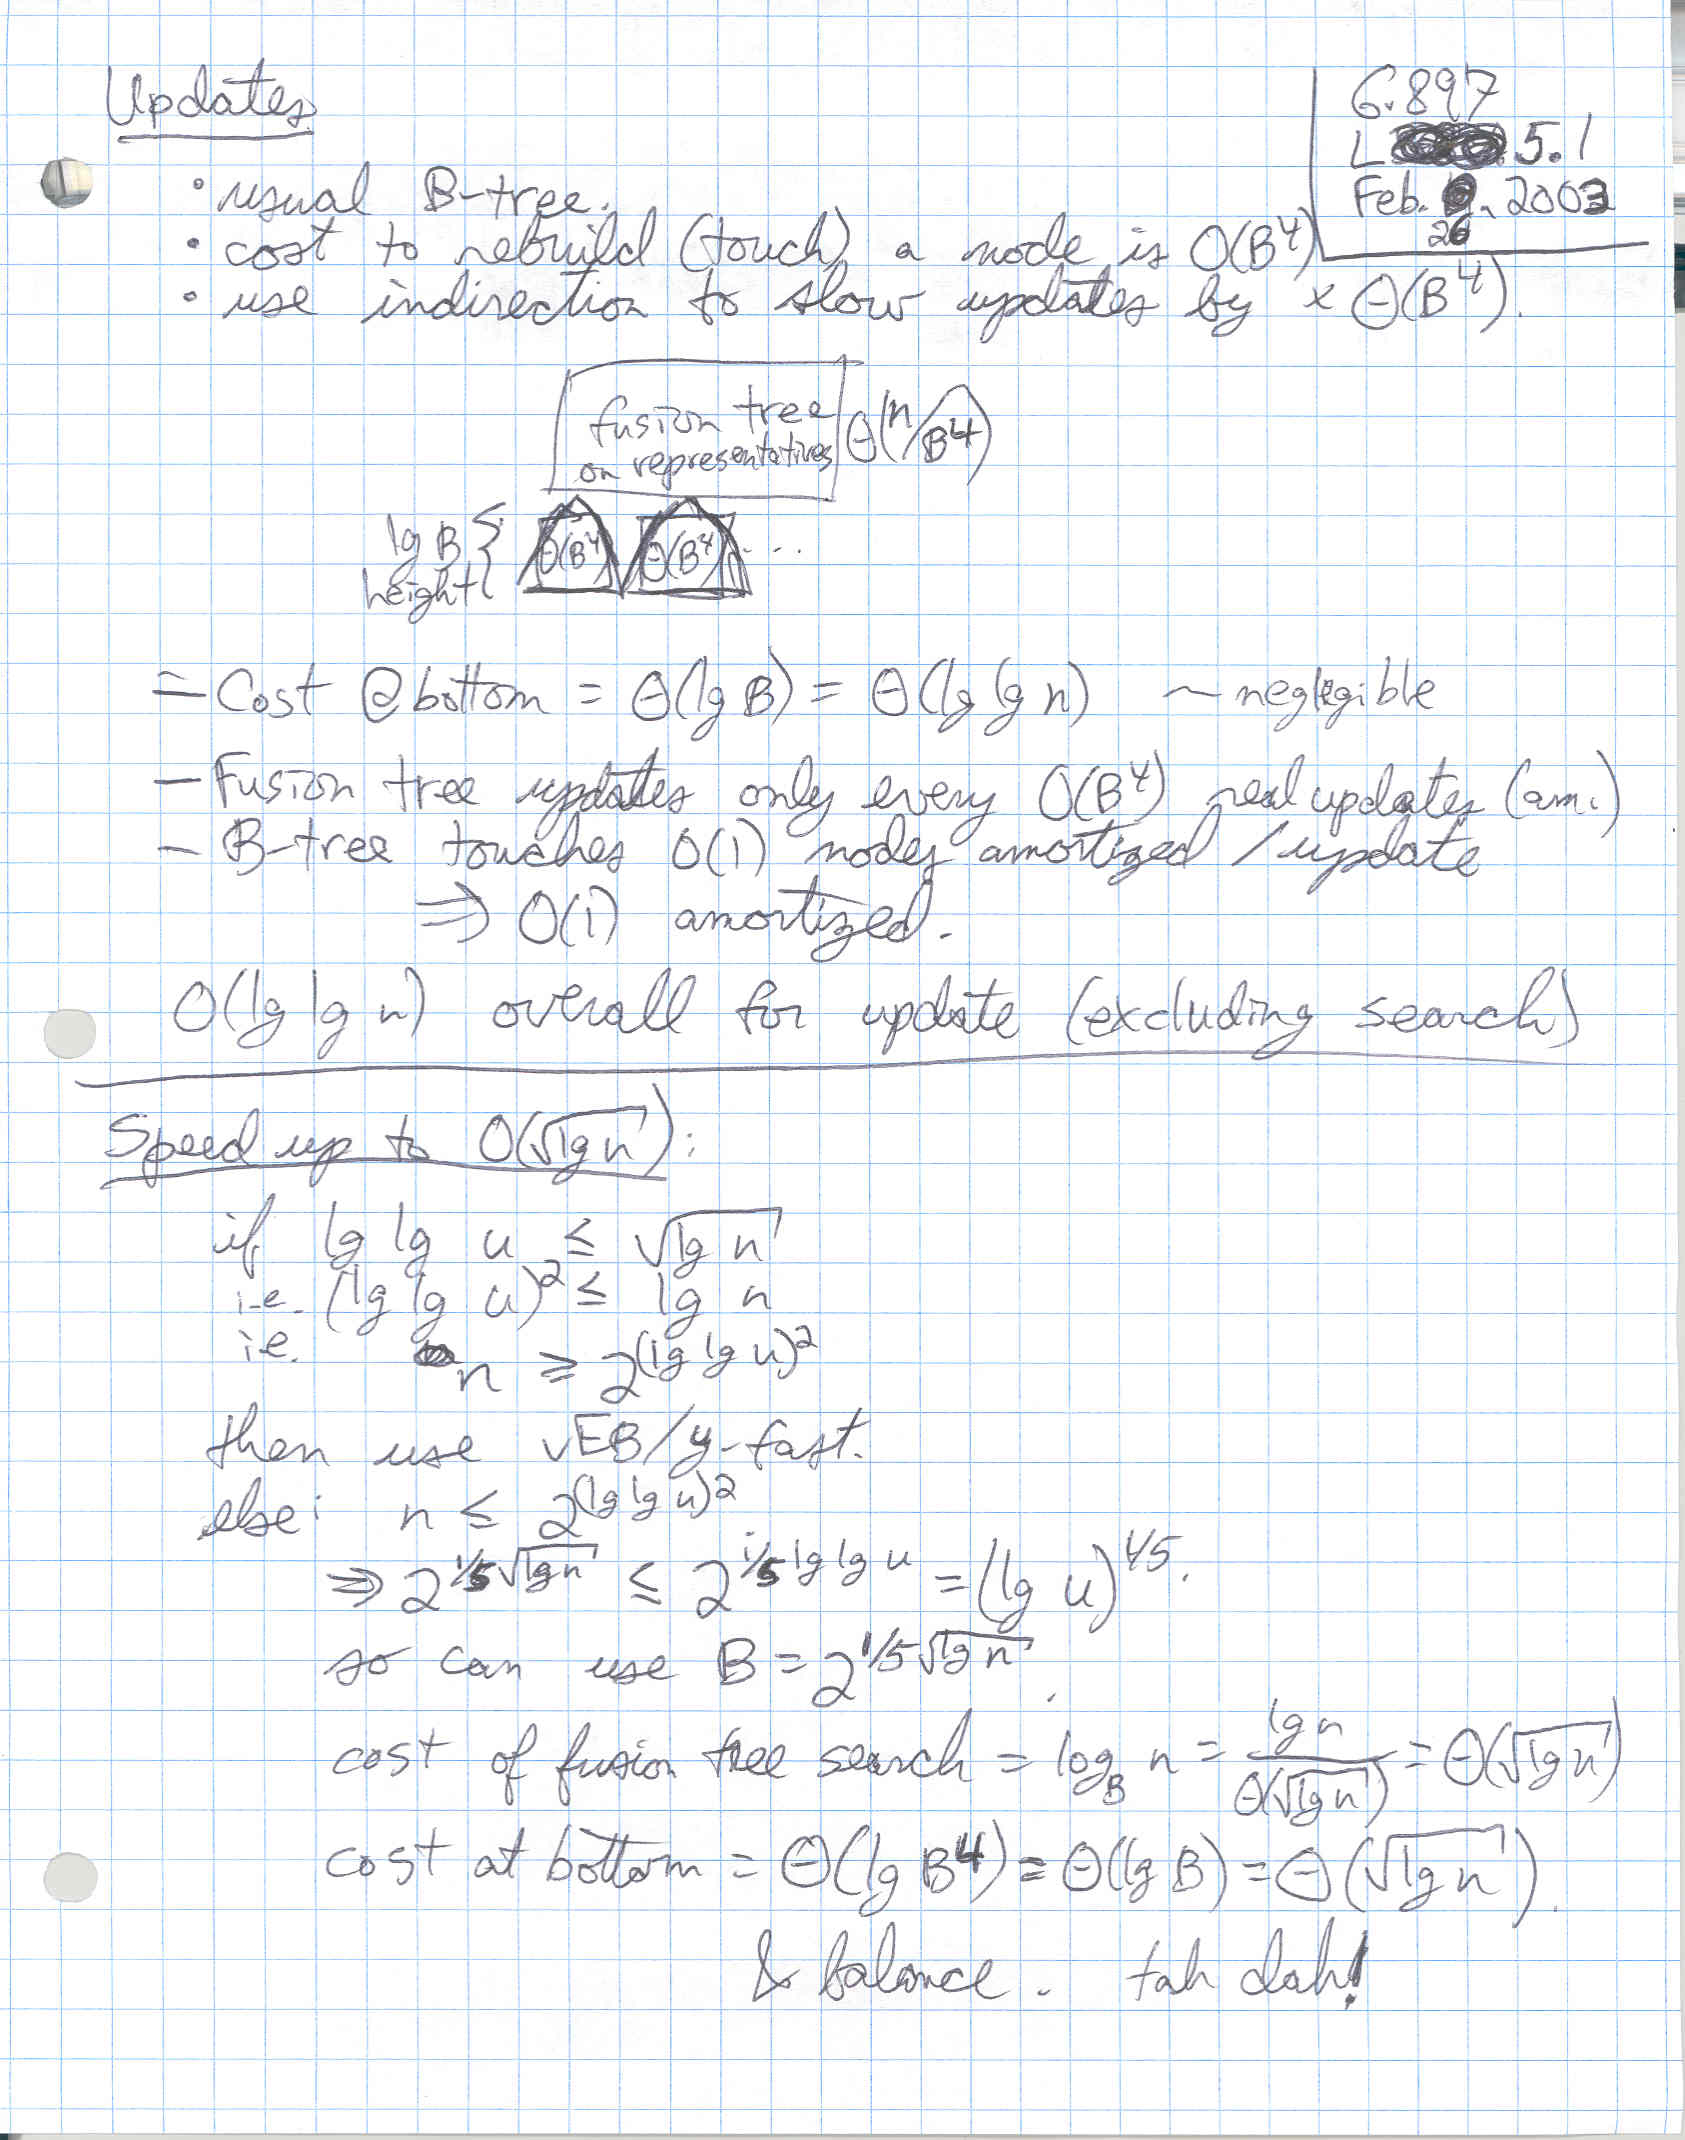 Updates
6.897
L 5.1
Feb. 26, 2003
• usual B-tree.
• cost to rebuild (touch) a node is O(B⁴)
• use indirection to slow updates by × Θ(B⁴).
fusion tree
on representatives
Θ(n/B⁴)
lg B
height
Θ(B⁴) Θ(B⁴) ...
– Cost @ bottom = Θ(lg B) = Θ(lg lg n) ~ negligible
– Fusion tree updates only every O(B⁴) real updates (am.)
– B-tree touches O(1) nodes amortized / update
⇒ O(1) amortized.
O(lg lg n) overall for update (excluding search)
Speed up to O(√lg n):
if lg lg u ≤ √lg n
i.e. (lg lg u)² ≤ lg n
i.e. n ≥ 2^(lg lg u)²
then use vEB/y-fast.
else: n ≤ 2^(lg lg u)²
⇒ 2^(1/5 √lg n) ≤ 2^(1/5 lg lg u) = (lg u)^1/5.
so can use B = 2^(1/5 √lg n).
cost of fusion tree search = log_B n = lg n / Θ(√lg n) = Θ(√lg n)
cost at bottom = Θ(lg B⁴) = Θ(lg B) = Θ(√lg n).
& balance. tah dah!